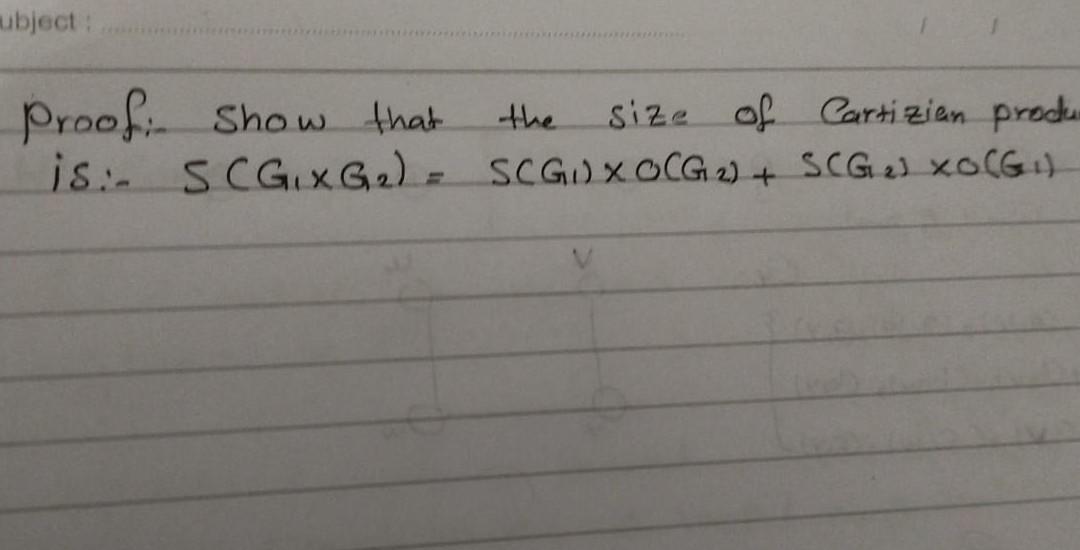 ubject :
/ /
Proof:- Show that the size of Cartizian produ
is:- S(G1×G2) = S(G1)×O(G2) + S(G2)×O(G1)
V